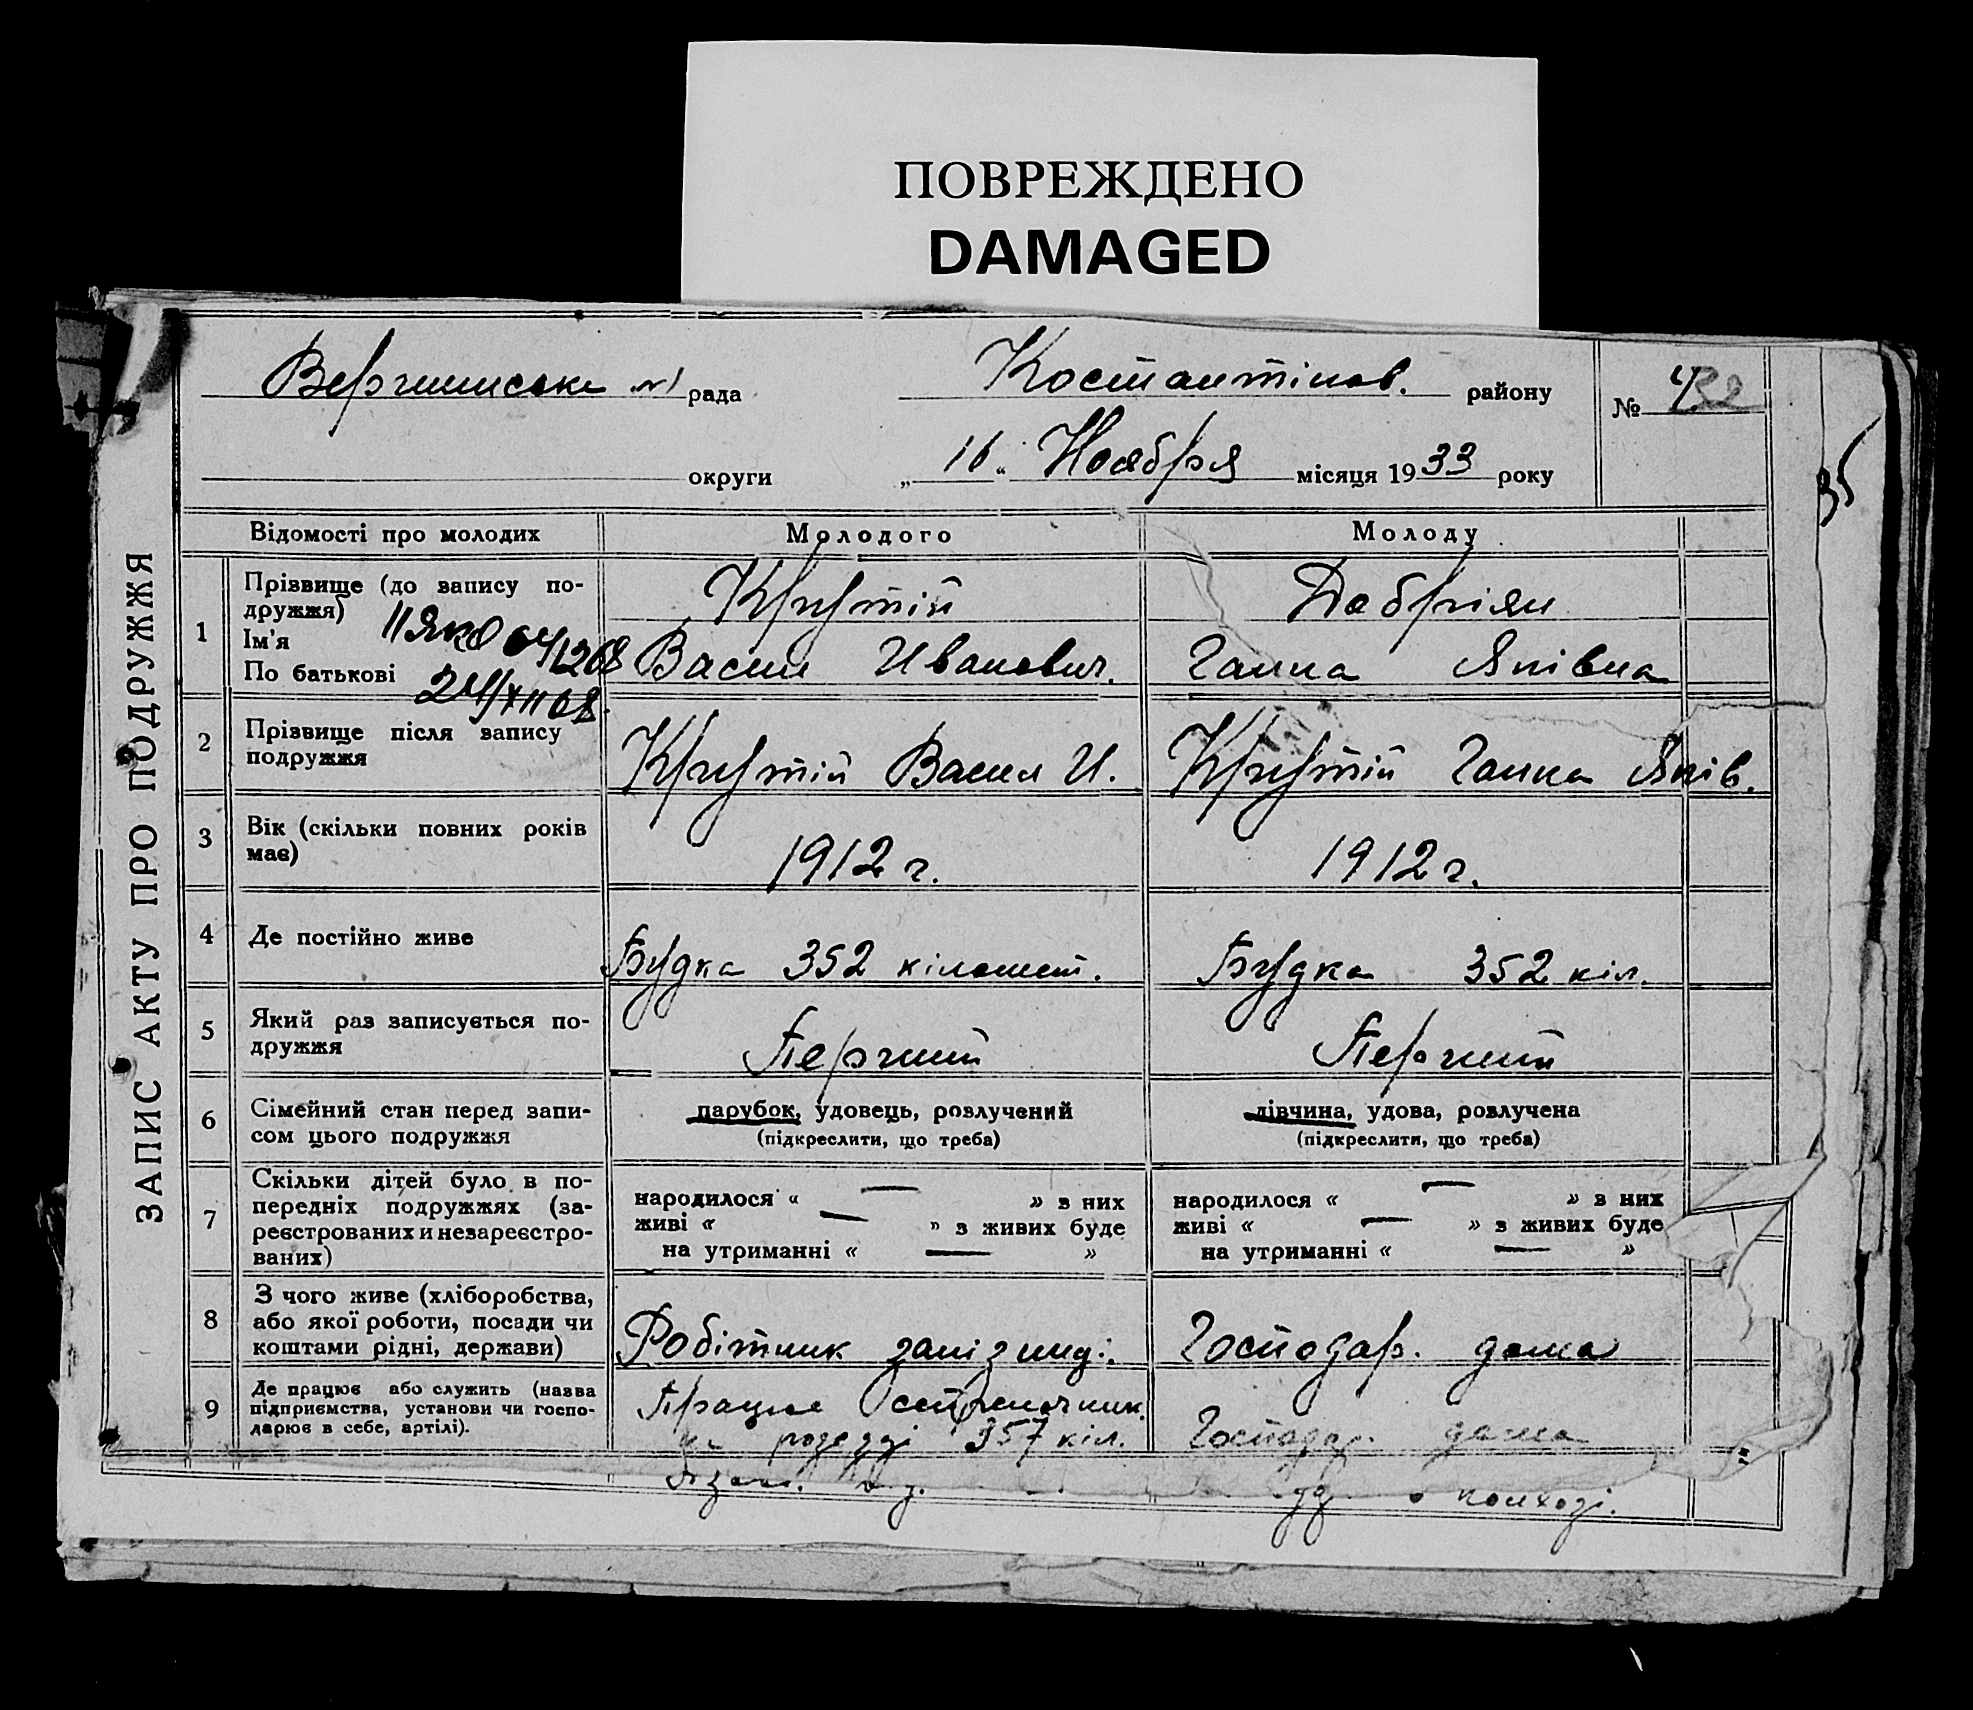 ПОВРЕЖДЕНО
DAMAGED
рада
Костантінов. району
№
округи
„16“ Ноября місяця 1933 року
35
ЗАПИС АКТУ ПРО ПОДРУЖЖЯ
Відомості про молодих
Молодого
Молоду
1
Прізвище (до запису по-
дружжя)
Ім'я
По батькові
Крутій
Васил Иванович.
Добріян
Ганна Яківна
2
Прізвище після запису
подружжя
Крутій Васил И.
Крутій Ганна Яків.
3
Вік (скільки повних років
має)
1912 г.
1912 г.
4
Де постійно живе
Будка 352 кіломет.
Будка 352 кіл.
5
Який раз записується по-
дружжя
Перчий
Перчий
6
Сімейний стан перед запи-
сом цього подружжя
парубок, удовець, розлучений
(підкреслити, що треба)
дівчина, удова, розлучена
(підкреслити, що треба)
7
Скільки дітей було в по-
передніх подружжях (за-
реєстрованих и незареєстро-
ваних)
народилося « — » з них
живі « — » з живих буде
на утриманні « — »
народилося « — » з них
живі « — » з живих буде
на утриманні « — »
8
З чого живе (хліборобства,
або якої роботи, посади чи
коштами рідні, держави)
Робітник залізниці.
Господар. дома
9
Де працює або служить (назва
підприємства, установи чи госпо-
дарює в себе, артілі).
Працює
розезді 357 кіл.
Господар. дома
колхозі.